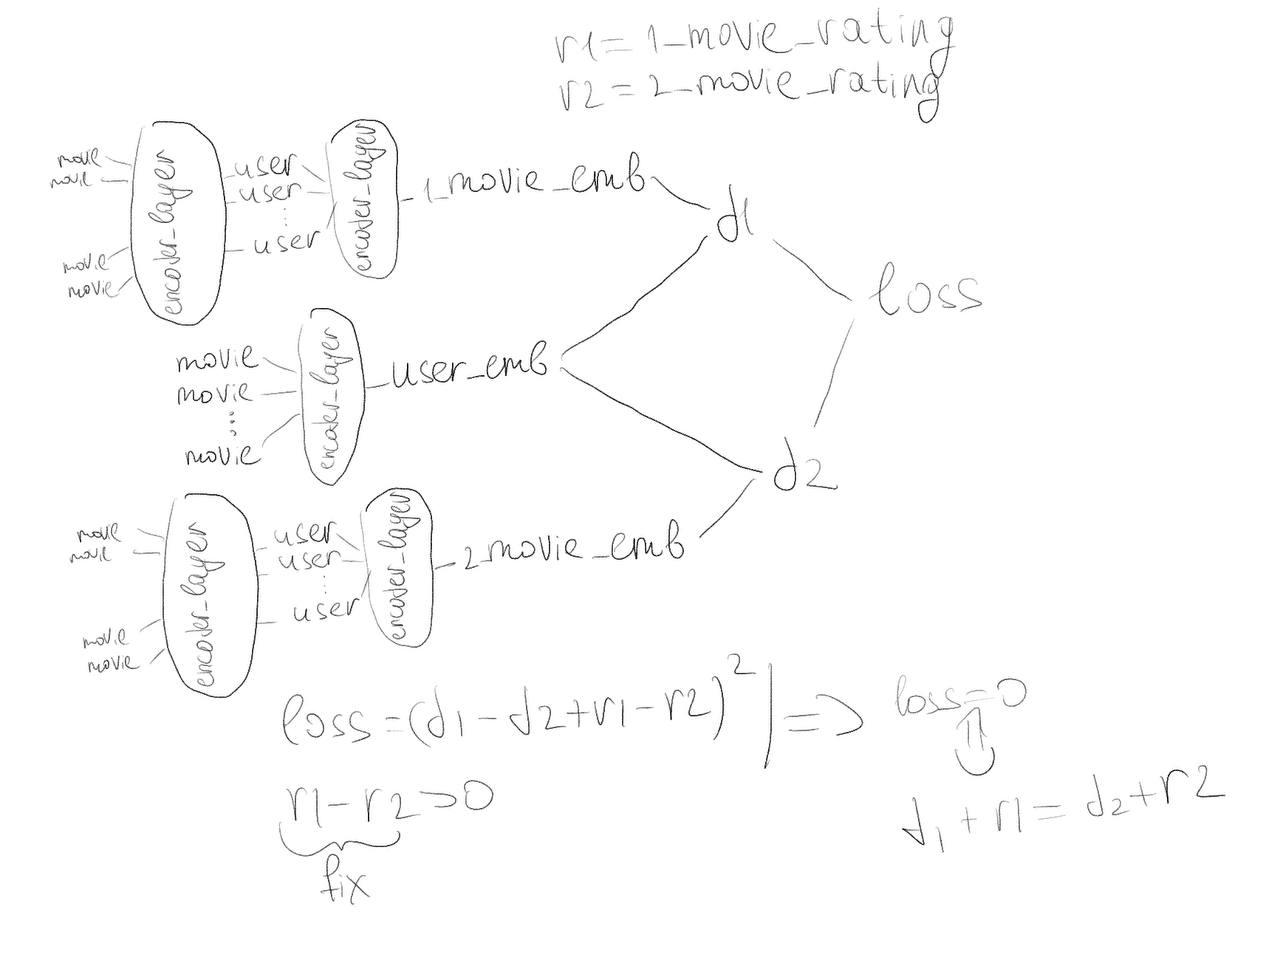 r1=1_movie_rating
r2=2_movie_rating
movie
movie
movie
movie
encoder_layer
user
user
user
encoder_layer
1_movie_emb
d1
loss
movie
movie
movie
encoder_layer
user_emb
d2
movie
movie
movie
movie
encoder_layer
user
user
user
encoder_layer
2_movie_emb
loss=(d1-d2+r1-r2)² | => loss=0
r1-r2>0
fix
d1+r1=d2+r2